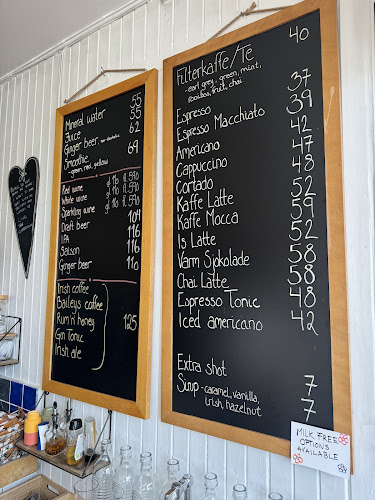 Mineral water 55
Juice 55
Ginger beer 62
Smoothie 69
- green, red, yellow
Red wine gl 110 fl 590
White wine gl 110 fl 590
Sparkling wine gl 110 fl 590
Draft beer 104
IPA 116
Saison 116
Ginger beer 110
Irish coffee
Baileys coffee
Rum n' honey 125
Gin Tonic
Irish ale
Filterkaffe/Te 40
- earl grey, green, mint,
rooibos, fruit, chai
Espresso 37
Espresso Macchiato 39
Americano 42
Cappuccino 47
Cortado 48
Kaffe Latte 52
Kaffe Mocca 59
Is Latte 52
Varm Sjokolade 58
Chai Latte 58
Espresso Tonic 48
Iced americano 42
Extra shot 7
Sirup - caramel, vanilla, 7
Irish, hazelnut
MILK FREE
OPTIONS
AVAILABLE